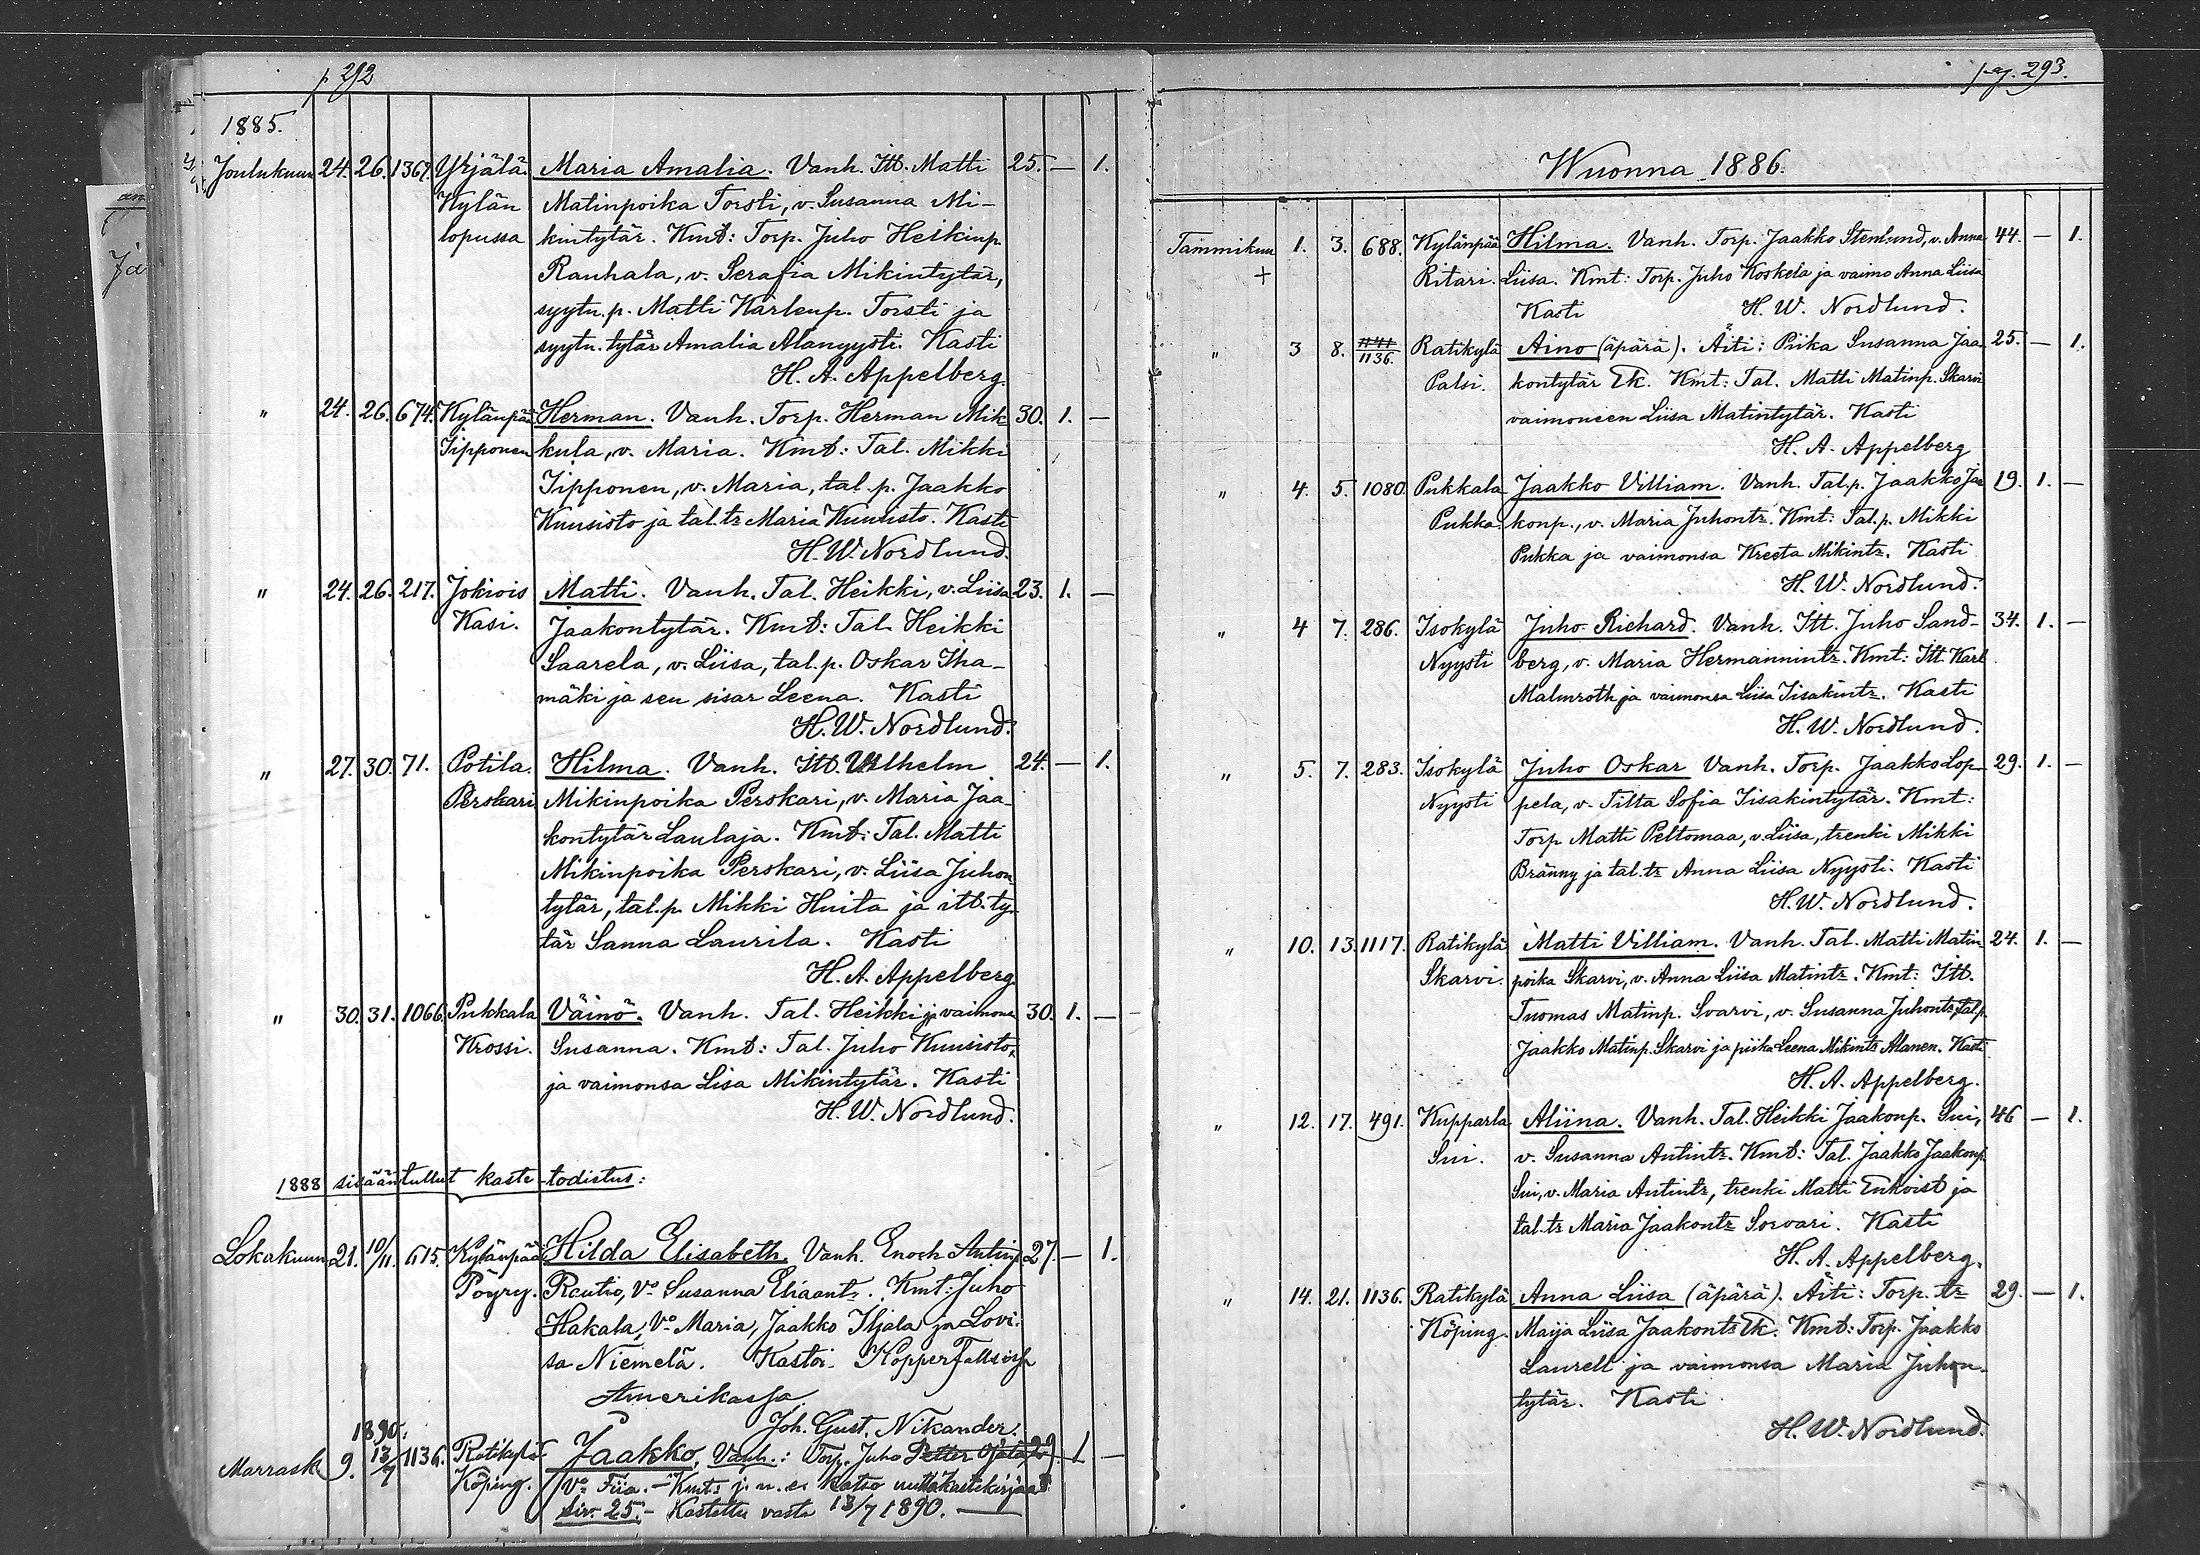 p 292
1885.
Joulukuun 24. 26. 1367. Yrjälä. Maria Amalia. Vanh. Itt. Matti 25. — 1.
Kylän Matinpoika Torsti, v. Susanna Mi-
lopussa kintytär. Kmt: Torp. Juho Heikinp.
Rauhala, v. Serafia Mikintytär,
syytn. p. Matti Karlenp. Torsti ja
syytn. tytär Amalia Alanyysti. Kasti
H. A. Appelberg.
" 24. 26. 674. Kylänpää Herman. Vanh. Torp. Herman Mik- 30. 1. —
Iipponen kula, v. Maria. Kmt: Tal. Mikki
Iipponen, v. Maria, tal. p. Jaakko
Kuusisto ja tal. tr Maria Kuusisto. Kasti
H. W. Nordlund.
" 24. 26. 217. Jokiois Matti. Vanh. Tal. Heikki, v. Liisa 23. 1. —
Kasi. Jaakontytär. Kmt: Tal. Heikki
Saarela, v. Liisa, tal. p. Oskar Iha-
mäki ja sen sisar Leena. Kasti
H. W. Nordlund.
" 27. 30. 71. Potila. Hilma. Vanh. Itt. Wilhelm 24. — 1.
Perskari Mikinpoika Perskari, v. Maria Jaa-
kontytär Laulaja. Kmt: Tal. Matti
Mikinpoika Perskari, v. Liisa Juhon-
tytär, tal. p. Mikki Huita ja itt. ty-
tär Sanna Laurila. Kasti
H. A. Appelberg.
" 30. 31. 1066. Pukkala Väinö. Vanh. Tal. Heikki ja vaimonsa 30. 1. —
Krossi. Susanna. Kmt: Tal. Juho Kuusisto,
ja vaimonsa Lisa Mikintytär. Kasti
H. W. Nordlund.
1888 sisääntullut kaste todistus:
Lokakuun 21. 10/11. 615. Kylänpää Hilda Elisabeth. Vanh. Enoch Antinp 27. — 1.
Pöyry. Rautio, Vo Susanna Eliaantr. Kmt: Juho
Hakala, Vo Maria, Jaakko Iljala ja Lovi-
sa Niemelä. Kastoi
Amerikassa
Joh. Gust. Nikander.
1890.
Marrask 9. 13/7 1136. Ratikylä Jaakko, Vanh.: Torp. Juho Petter 29. 1 —
Köping. Vo Fiia. – Kmt: j. n. e. katso
siv. 25. – Kastettu vasta 13/7 1890. —
pag. 293.
Wuonna 1886.
Tammikuu 1. 3. 688. Kylänpää Hilma. Vanh. Torp. Jaakko Stenlund, v. Anna 44. — 1.
+ Ritari. Liisa. Kmt: Torp. Juho Koskela ja vaimo Anna Liisa
Kasti H. W. Nordlund.
" 3 8. 1136. Ratikylä Aino (äpärä). Äiti: Piika Susanna Jaa- 25. — 1.
Palsi. kontytär Ek. Kmt: Tal. Matti Matinp. Skarvi
vaimoneen Liisa Matintytär. Kasti
H. A. Appelberg
" 4. 5. 1080. Pukkala Jaakko Villiam. Vanh. Tal. p. Jaakko Jaa- 19. 1. —
Pukka. konp., v. Maria Juhontr. Kmt: Tal. p. Mikki
Pukka ja vaimonsa Kreeta Mikintr. Kasti
H. W. Nordlund.
" 4 7. 286. Isokylä Juho Richard. Vanh. Itt. Juho Sand- 34. 1. —
Nyysti berg, v. Maria Hermannintr. Kmt: Itt. Karl
Malmroth ja vaimonsa Liisa Iisakintr. Kasti
H. W. Nordlund.
" 5. 7. 283. Isokylä Juho Oskar Vanh. Torp. Jaakko Lop- 29. 1. —
Nyysti pela, v. Titta Sofia Iisakintytär. Kmt:
Torp. Matti Peltomaa, v. Liisa, trenki Mikki
Bränny ja tal. tr Anna Liisa Nyysti. Kasti
H. W. Nordlund.
" 10. 13. 1117. Ratikylä Matti Villiam. Vanh. Tal. Matti Matin 24. 1. —
Skarvi. poika Skarvi, v. Anna Liisa Matintr. Kmt: Itt.
Tuomas Matinp. Svarvi, v. Susanna Juhontr, tal. p.
Jaakko Matinp. Skarvi ja piika Leena Mikintr Alanen. Kasti
H. A. Appelberg.
" 12. 17. 491. Kupparla Aliina. Vanh. Tal. Heikki Jaakonp. Sui, 46 — 1.
Sui. v. Susanna Antintr. Kmt: Tal. Jaakko Jaakonp.
Sui, v. Maria Antintr, trenki Matti Enkvist ja
tal. tr Maria Jaakontr Sorvari. Kasti
H. A. Appelberg.
" 14. 21. 1136. Ratikylä Anna Liisa (äpärä). Äiti: Torp. tr 29. — 1.
Köping. Maija Liisa Jaakontr Ek. Kmt: Torp. Jaakko
Laurell ja vaimonsa Maria Juhon-
tytär. Kasti
H. W. Nordlund.